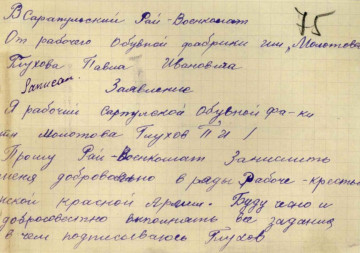 В Сарапульский Рай-Военкомат
75
От рабочего Обувной фабрики им „Молотова
Глухова Павла Ивановича
Записат.
Заявление
Я рабочий Сарпулской Обувной фа-ки
им Молотова Глухов П И /
Прошу Рай-Военкомат Зачислить
меня добровольно в ряды Рабоче-кресть
нской красной Армии. Буду чесно и
добросовестно выполнять все задания
в чем подписоваюсь Глухов